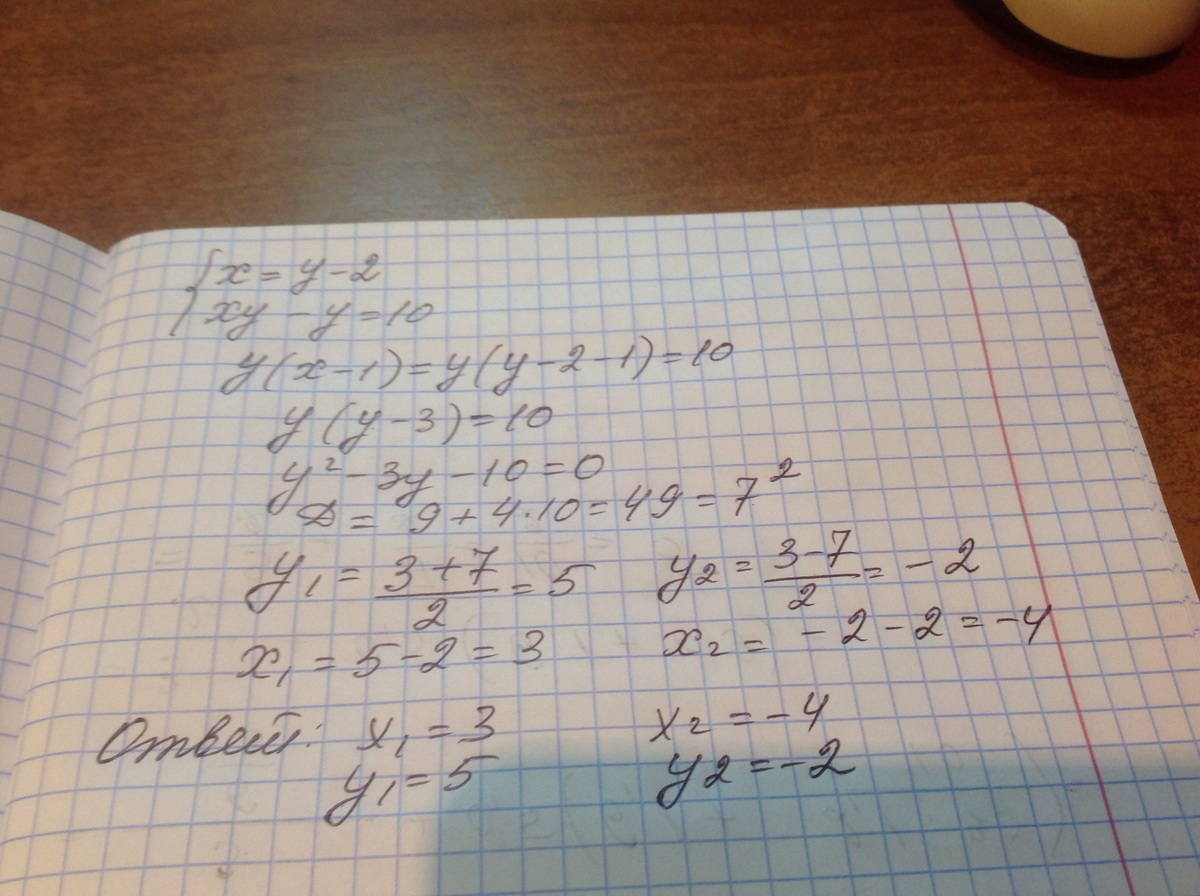 { x = y - 2
xy - y = 10
y(x-1) = y(y-2-1) = 10
y(y-3) = 10
y² - 3y - 10 = 0
D = 9 + 4·10 = 49 = 7²
y₁ = (3+7)/2 = 5 y₂ = (3-7)/2 = -2
x₁ = 5-2 = 3 x₂ = -2-2 = -4
Ответ: x₁ = 3 x₂ = -4
y₁ = 5 y₂ = -2